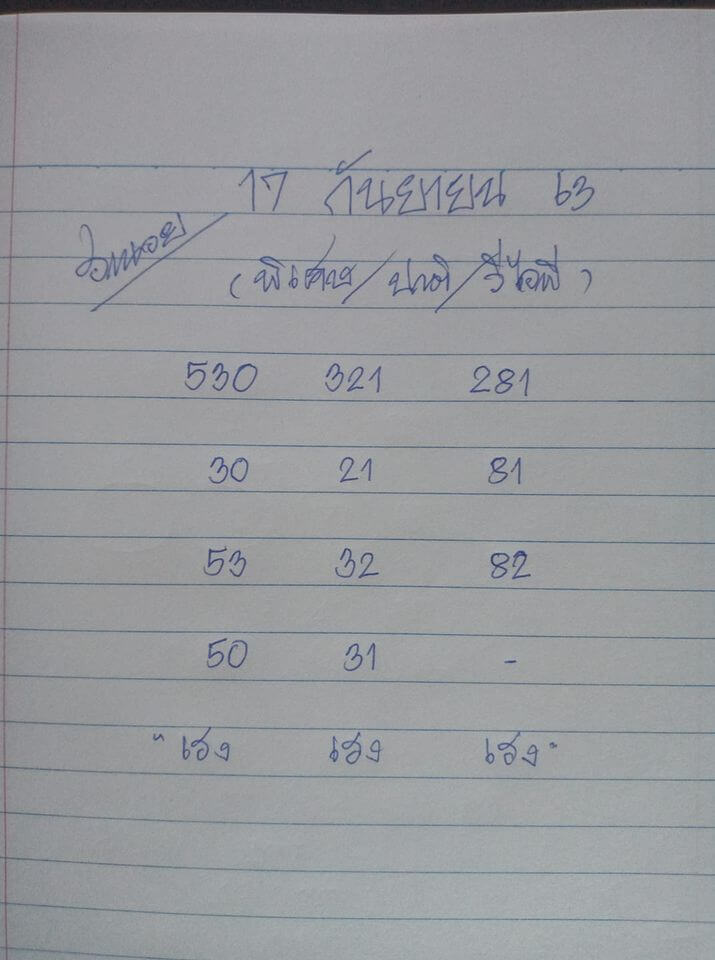 17 กันยายน 63
ฮานอย
(พิเศษ/ปกติ/วีไอพี)
530 321 281
30 21 81
53 32 82
50 31 -
"เฮง เฮง เฮง"